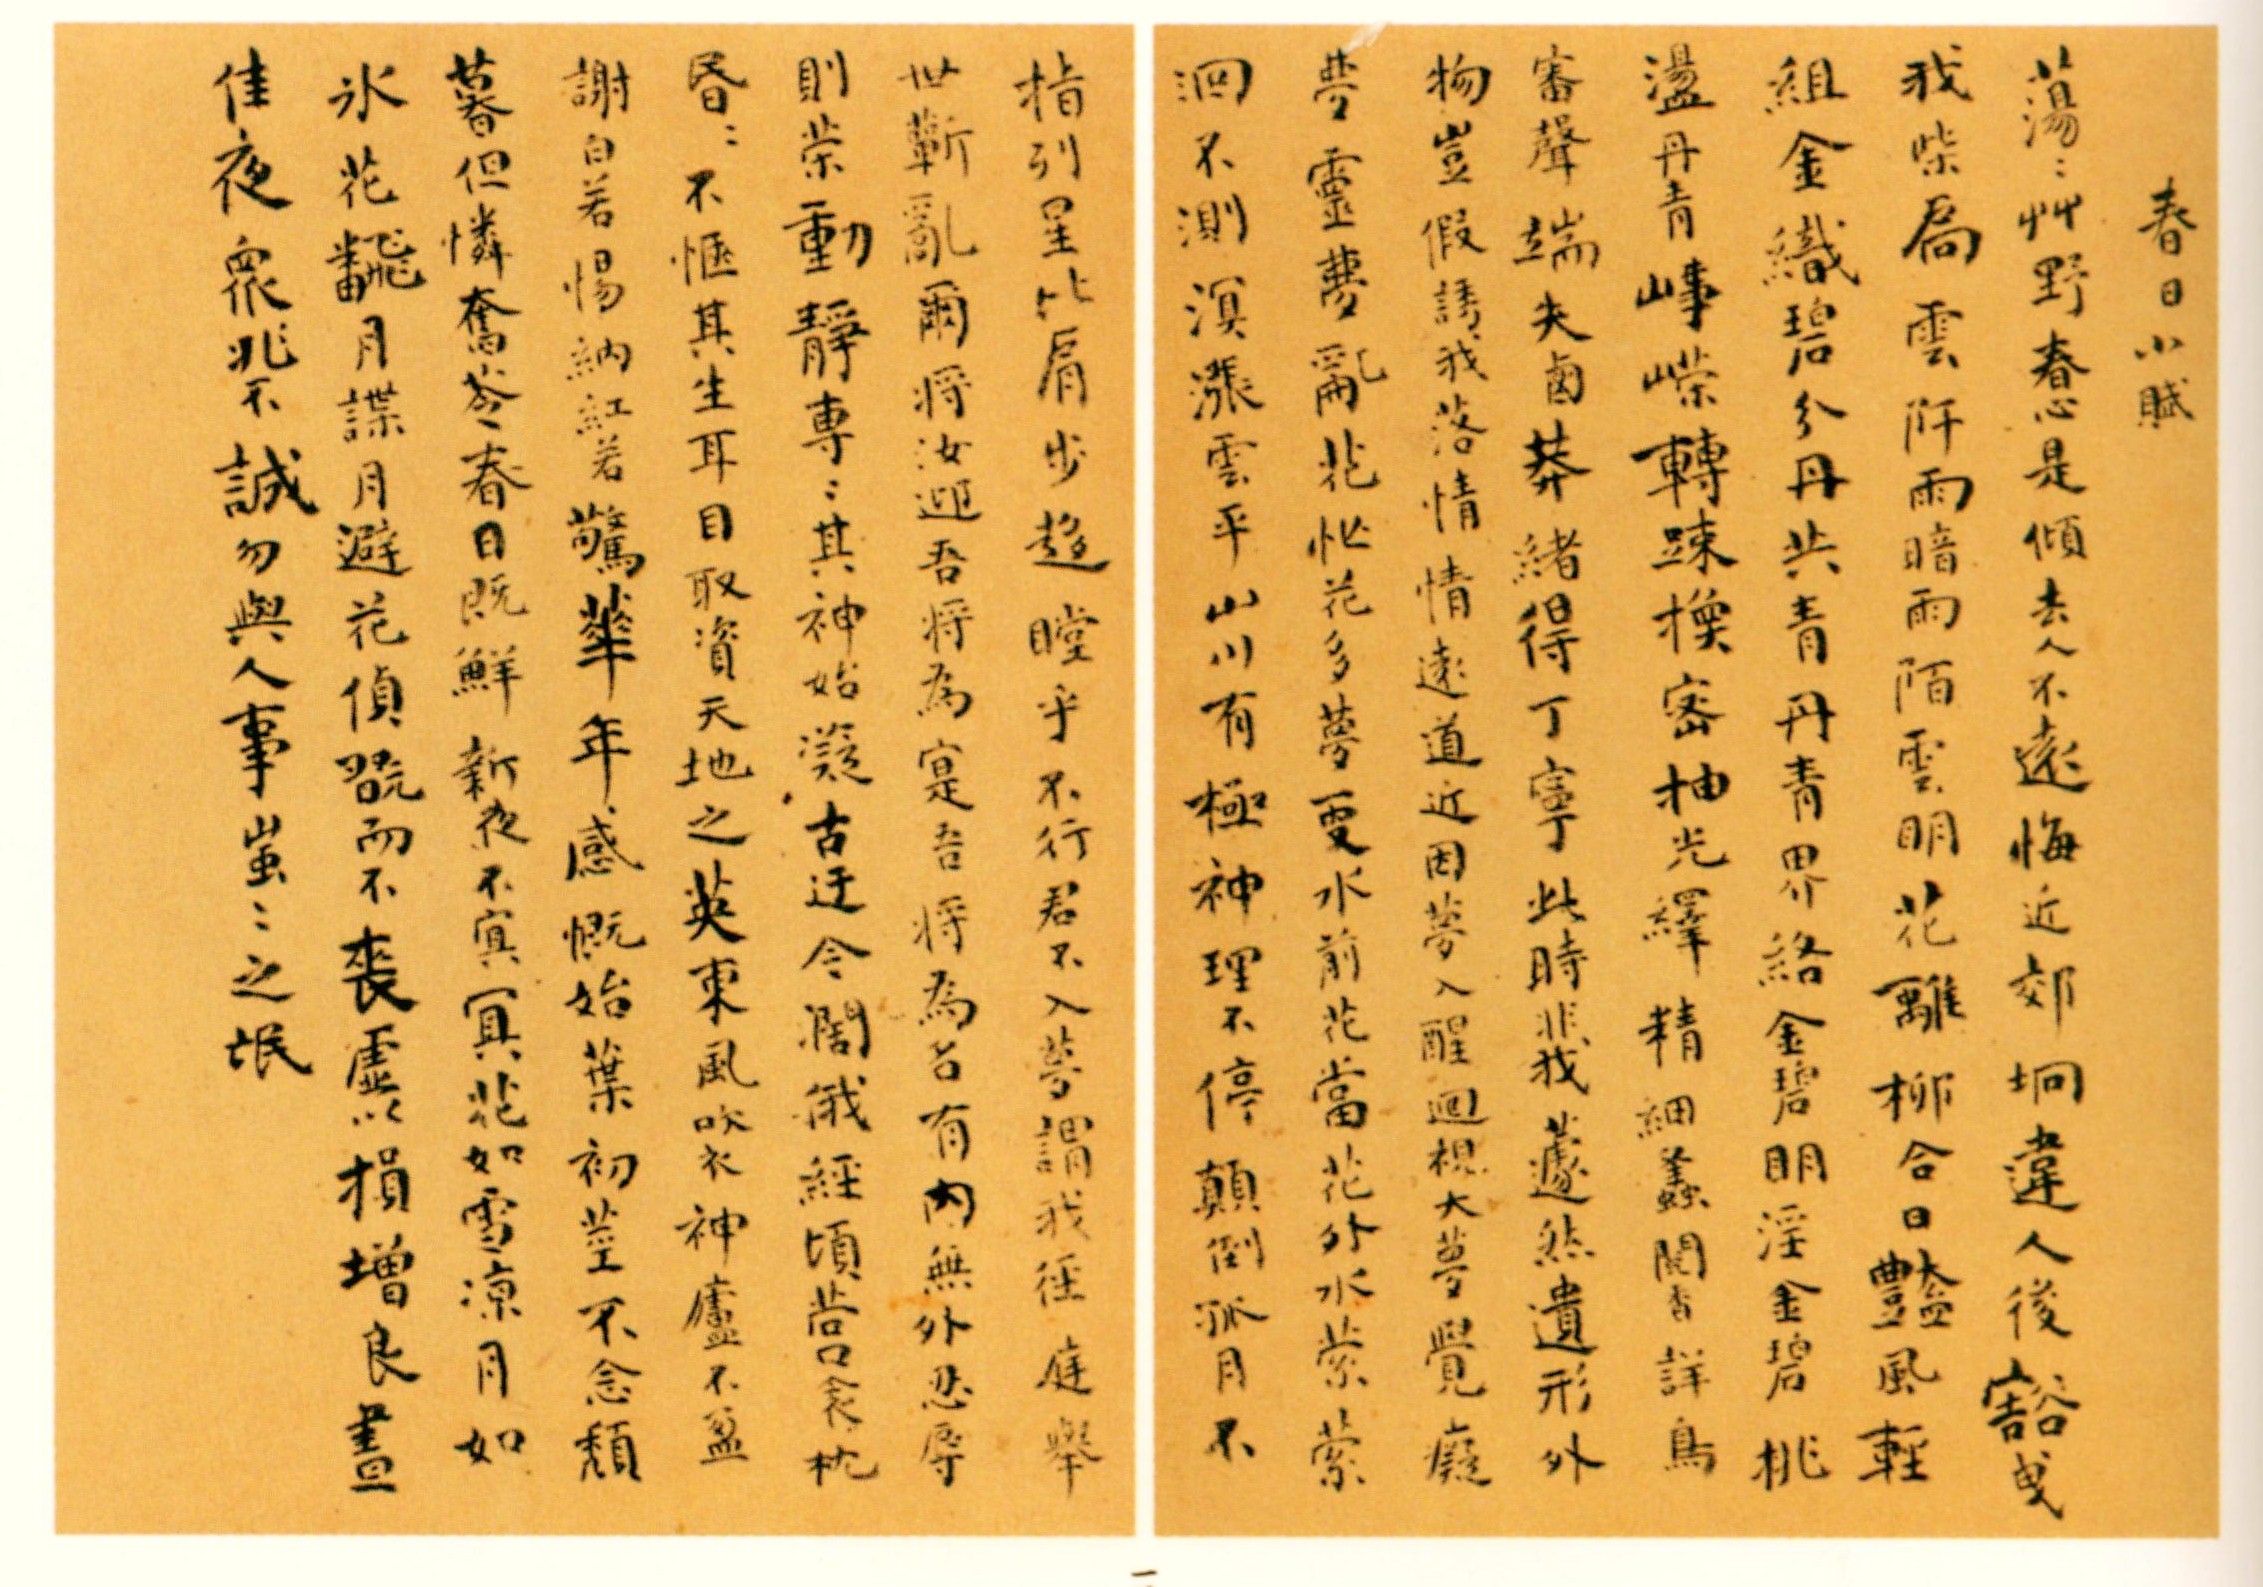 春日小賦
蕩〻艸野春心是傾去人不遠悔近郊坰違人後豁曳
我柴扃雲阡雨暗雨陌雲明花離柳合日豔風輕
組金織碧分丹共青丹青界絡金碧明淫金碧桃
盪丹青峰嶸轉疎換密抽光繹精細蠡聞香詳鳥
審聲端失鹵莽緒得丁寧此時非我蘧然遺形外
物豈假誘我落情情遠道近因夢入醒迴視大夢覺癡
夢靈夢亂花忙花多夢更水前花當花外水縈縈
洄不測溟漲雲平山川有極神理不停顛倒孤月不
指列星比肩步趨瞠乎不行君不入夢謂我徑庭舉
世蘄亂爾將汝迎吾將為寔吾將為名有內無外忍辱
則榮動靜專〻其神始凝古迂今闊俄經頃營口衾枕
昏〻不愜其生耳目取資天地之英東風吹衣神廬不盈
謝白若惕納紅若驚華年感慨始葉初莖不念頹
暮但憐奮苓春日既鮮新夜不寘冥花如雪涼月如
氷花飜月諜月避花偵翫而不喪虛以損增良晝
佳夜眾兆不誠勿與人事蚩〻之氓
一